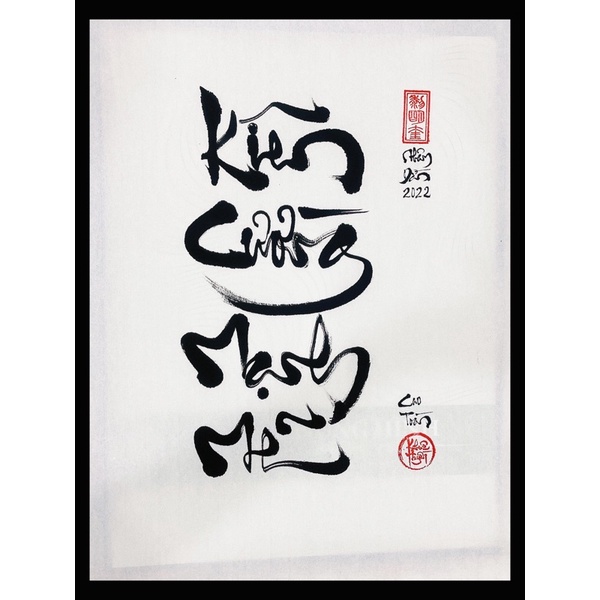 Kiên
Cường
Mạnh
Mẽ
Nhâm
Dần
2022
Cao
Toàn